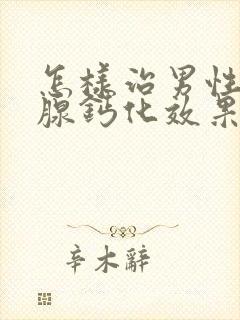 怎样治男性
腺鈣化效果
辛木辭